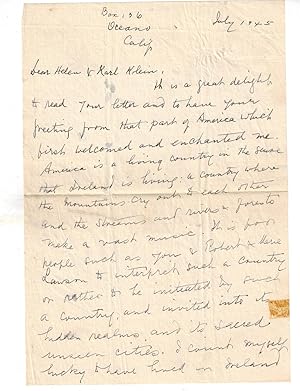 Box 196
Oceano
Calif
July 1945
Dear Helen & Karl Klein,
It is a great delight
to read your letter and to have your
greeting from that part of America which
first welcomed and enchanted me
America is a living country in the sense
that Ireland is living: a country where
the mountains cry out to each other
and the streams and rivers & forests
make a vast music. It is for
people such as you & Robert &
Lawson to interpret such a country
or rather to be initiated by such
a country, and invited into its
hidden realms and its sacred
unseen cities. I count myself
lucky to have lived in Ireland